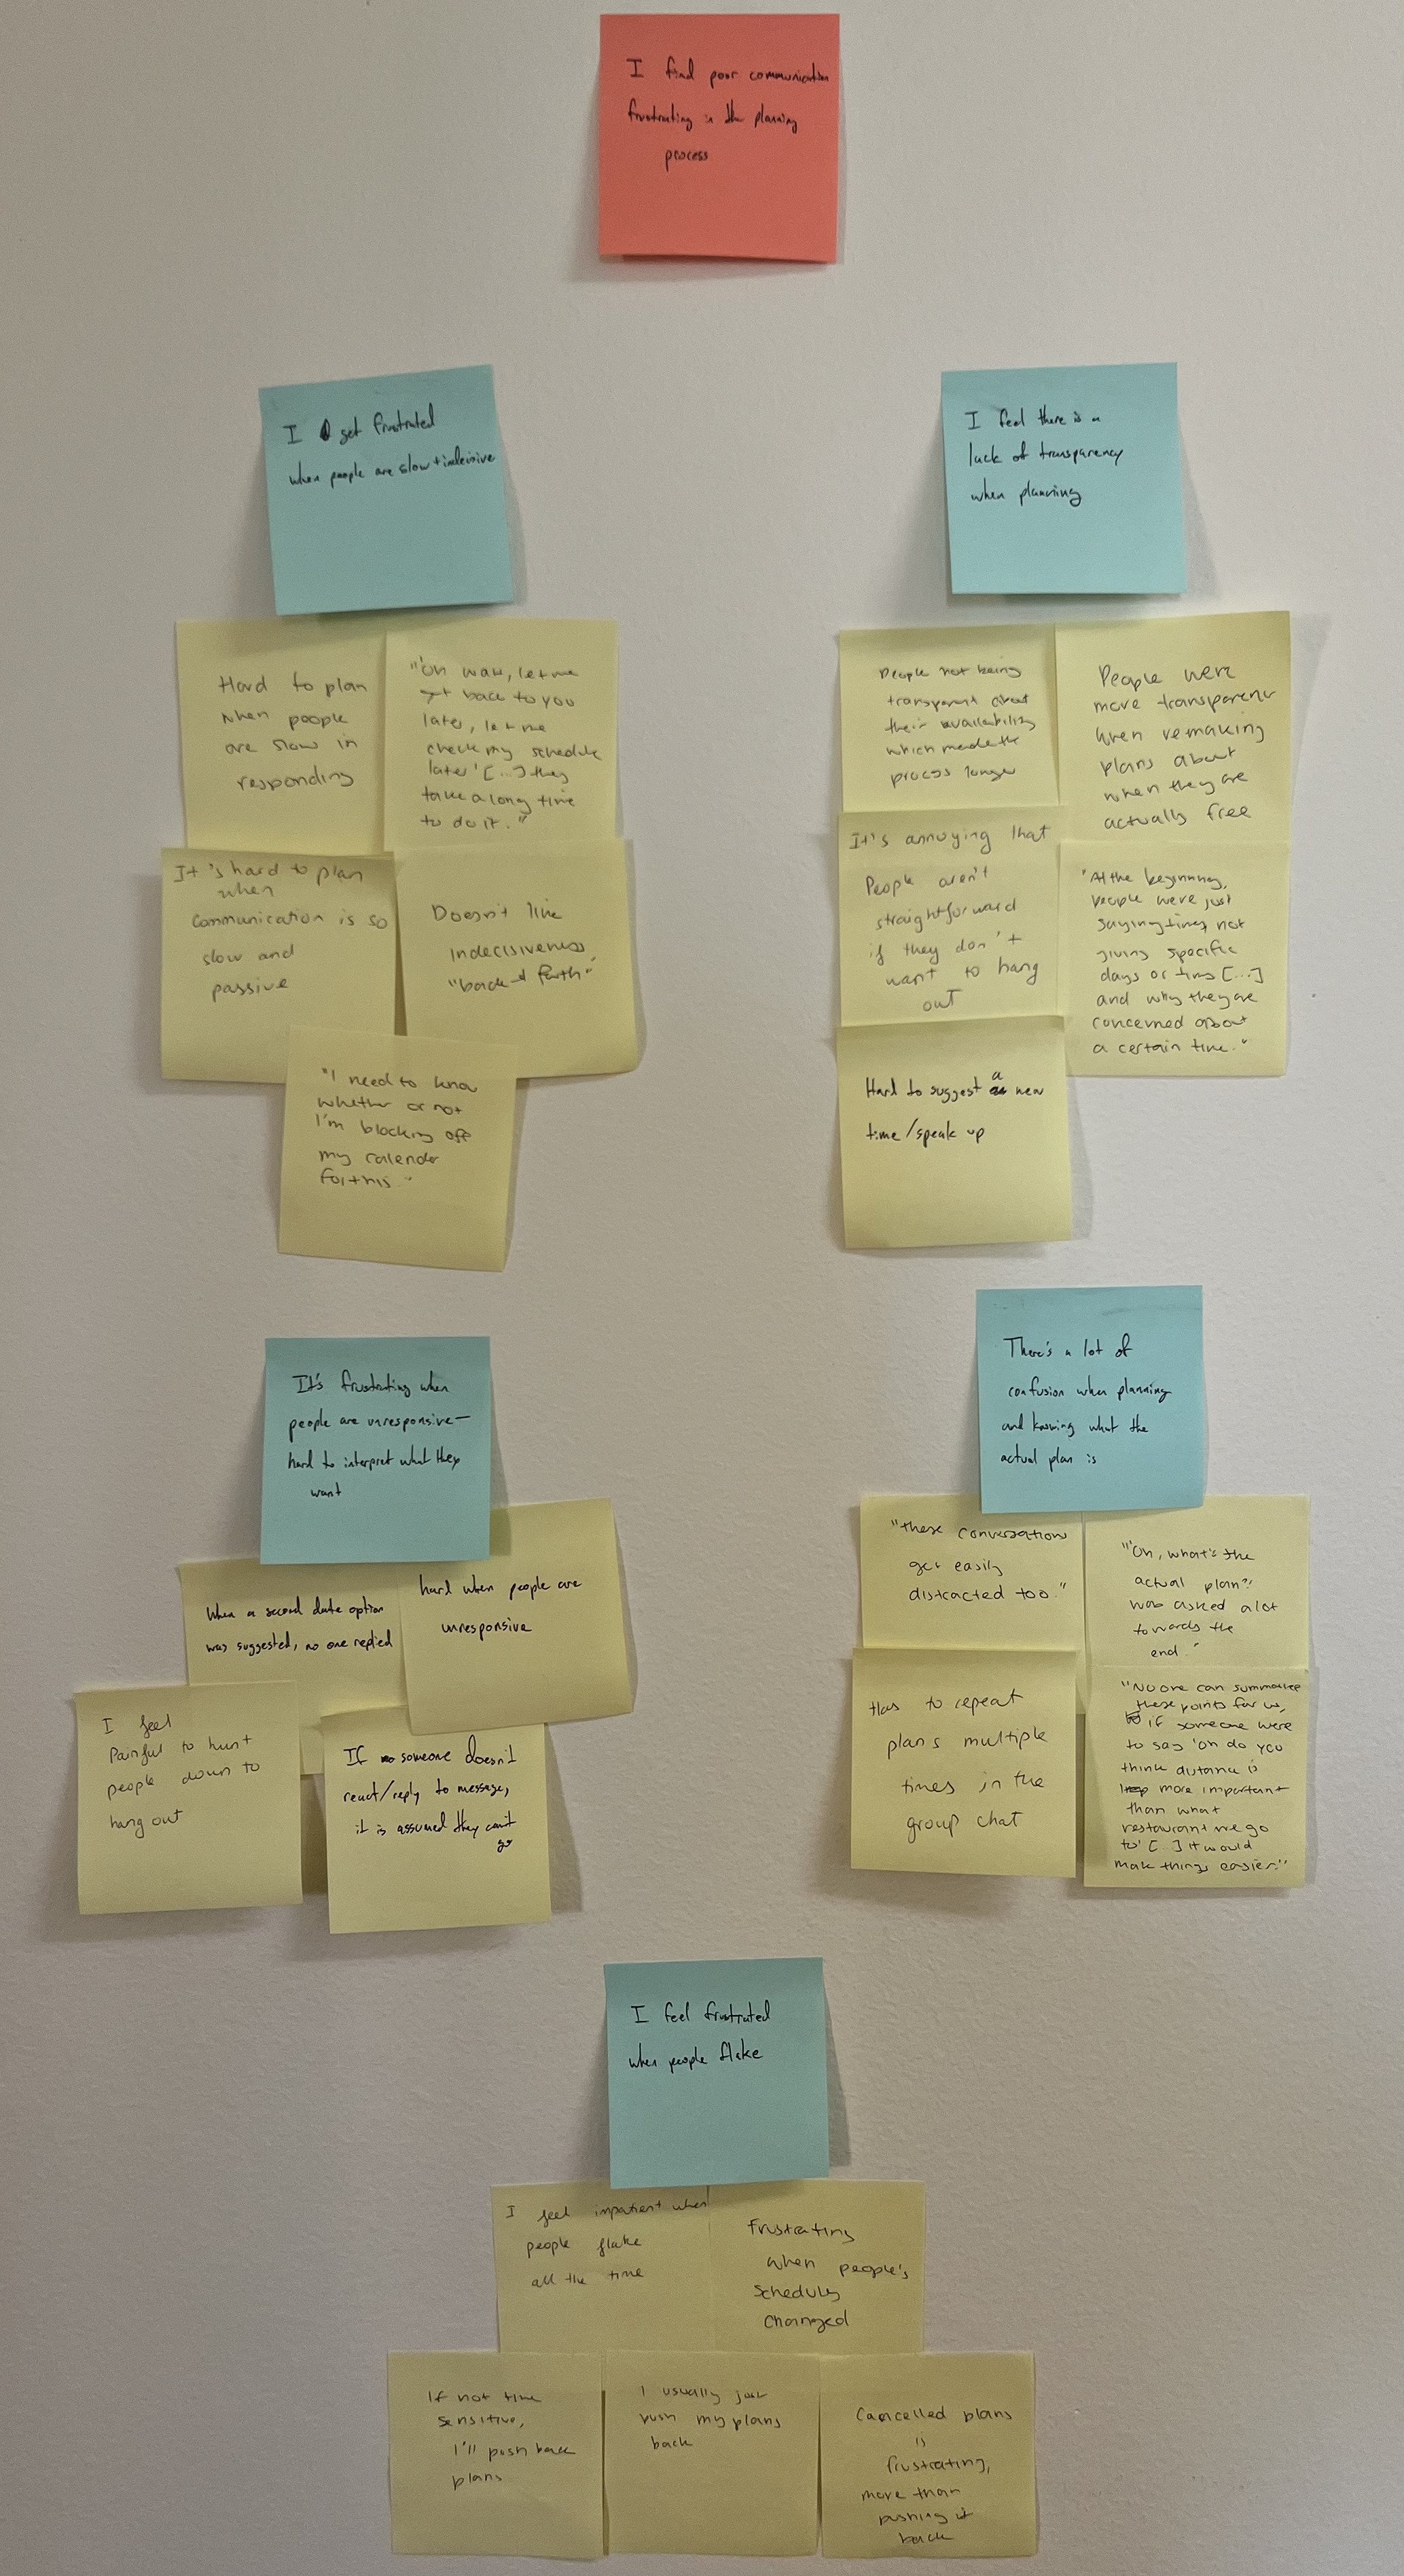 I find poor communication
frustrating in the planning
process
I get frustrated
when people are slow + indecisive
Hard to plan
when people
are slow in
responding
"'Oh wait, let me
get back to you
later, let me
check my schedule
later' [...] they
take a long time
to do it."
It's hard to plan
when
communication is so
slow and
passive
Doesn't like
indecisiveness
"back + forth"
"I need to know
whether or not
I'm blocking off
my calendar
for this."
I feel there is a
lack of transparency
when planning
People not being
transparent about
their availability
which made the
process longer
People were
more transparent
when remaking
plans about
when they are
actually free
It's annoying that
people aren't
straightforward
if they don't
want to hang
out
"At the beginning,
people were just
saying times, not
giving specific
days or times [...]
and why they are
concerned about
a certain time."
Hard to suggest a new
time/speak up
It's frustrating when
people are unresponsive—
hard to interpret what they
want
When a second date option
was suggested, no one replied
hard when people are
unresponsive
I feel
Painful to hunt
people down to
hang out
If someone doesn't
react/reply to message,
it is assumed they can't
go
There's a lot of
confusion when planning
and knowing what the
actual plan is
"these conversations
get easily
distracted too."
"'Oh, what's the
actual plan?'
was asked a lot
towards the
end."
Has to repeat
plans multiple
times in the
group chat
"No one can summarize
these points for us,
if someone were
to say 'oh do you
think distance is
more important
than what
restaurant we go
to' [...] it would
make things easier."
I feel frustrated
when people flake
I feel impatient when
people flake
all the time
Frustrating
when people's
schedules
changed
If not time
sensitive,
I'll push back
plans
I usually just
push my plans
back
Cancelled plans
is
frustrating,
more than
pushing it
back